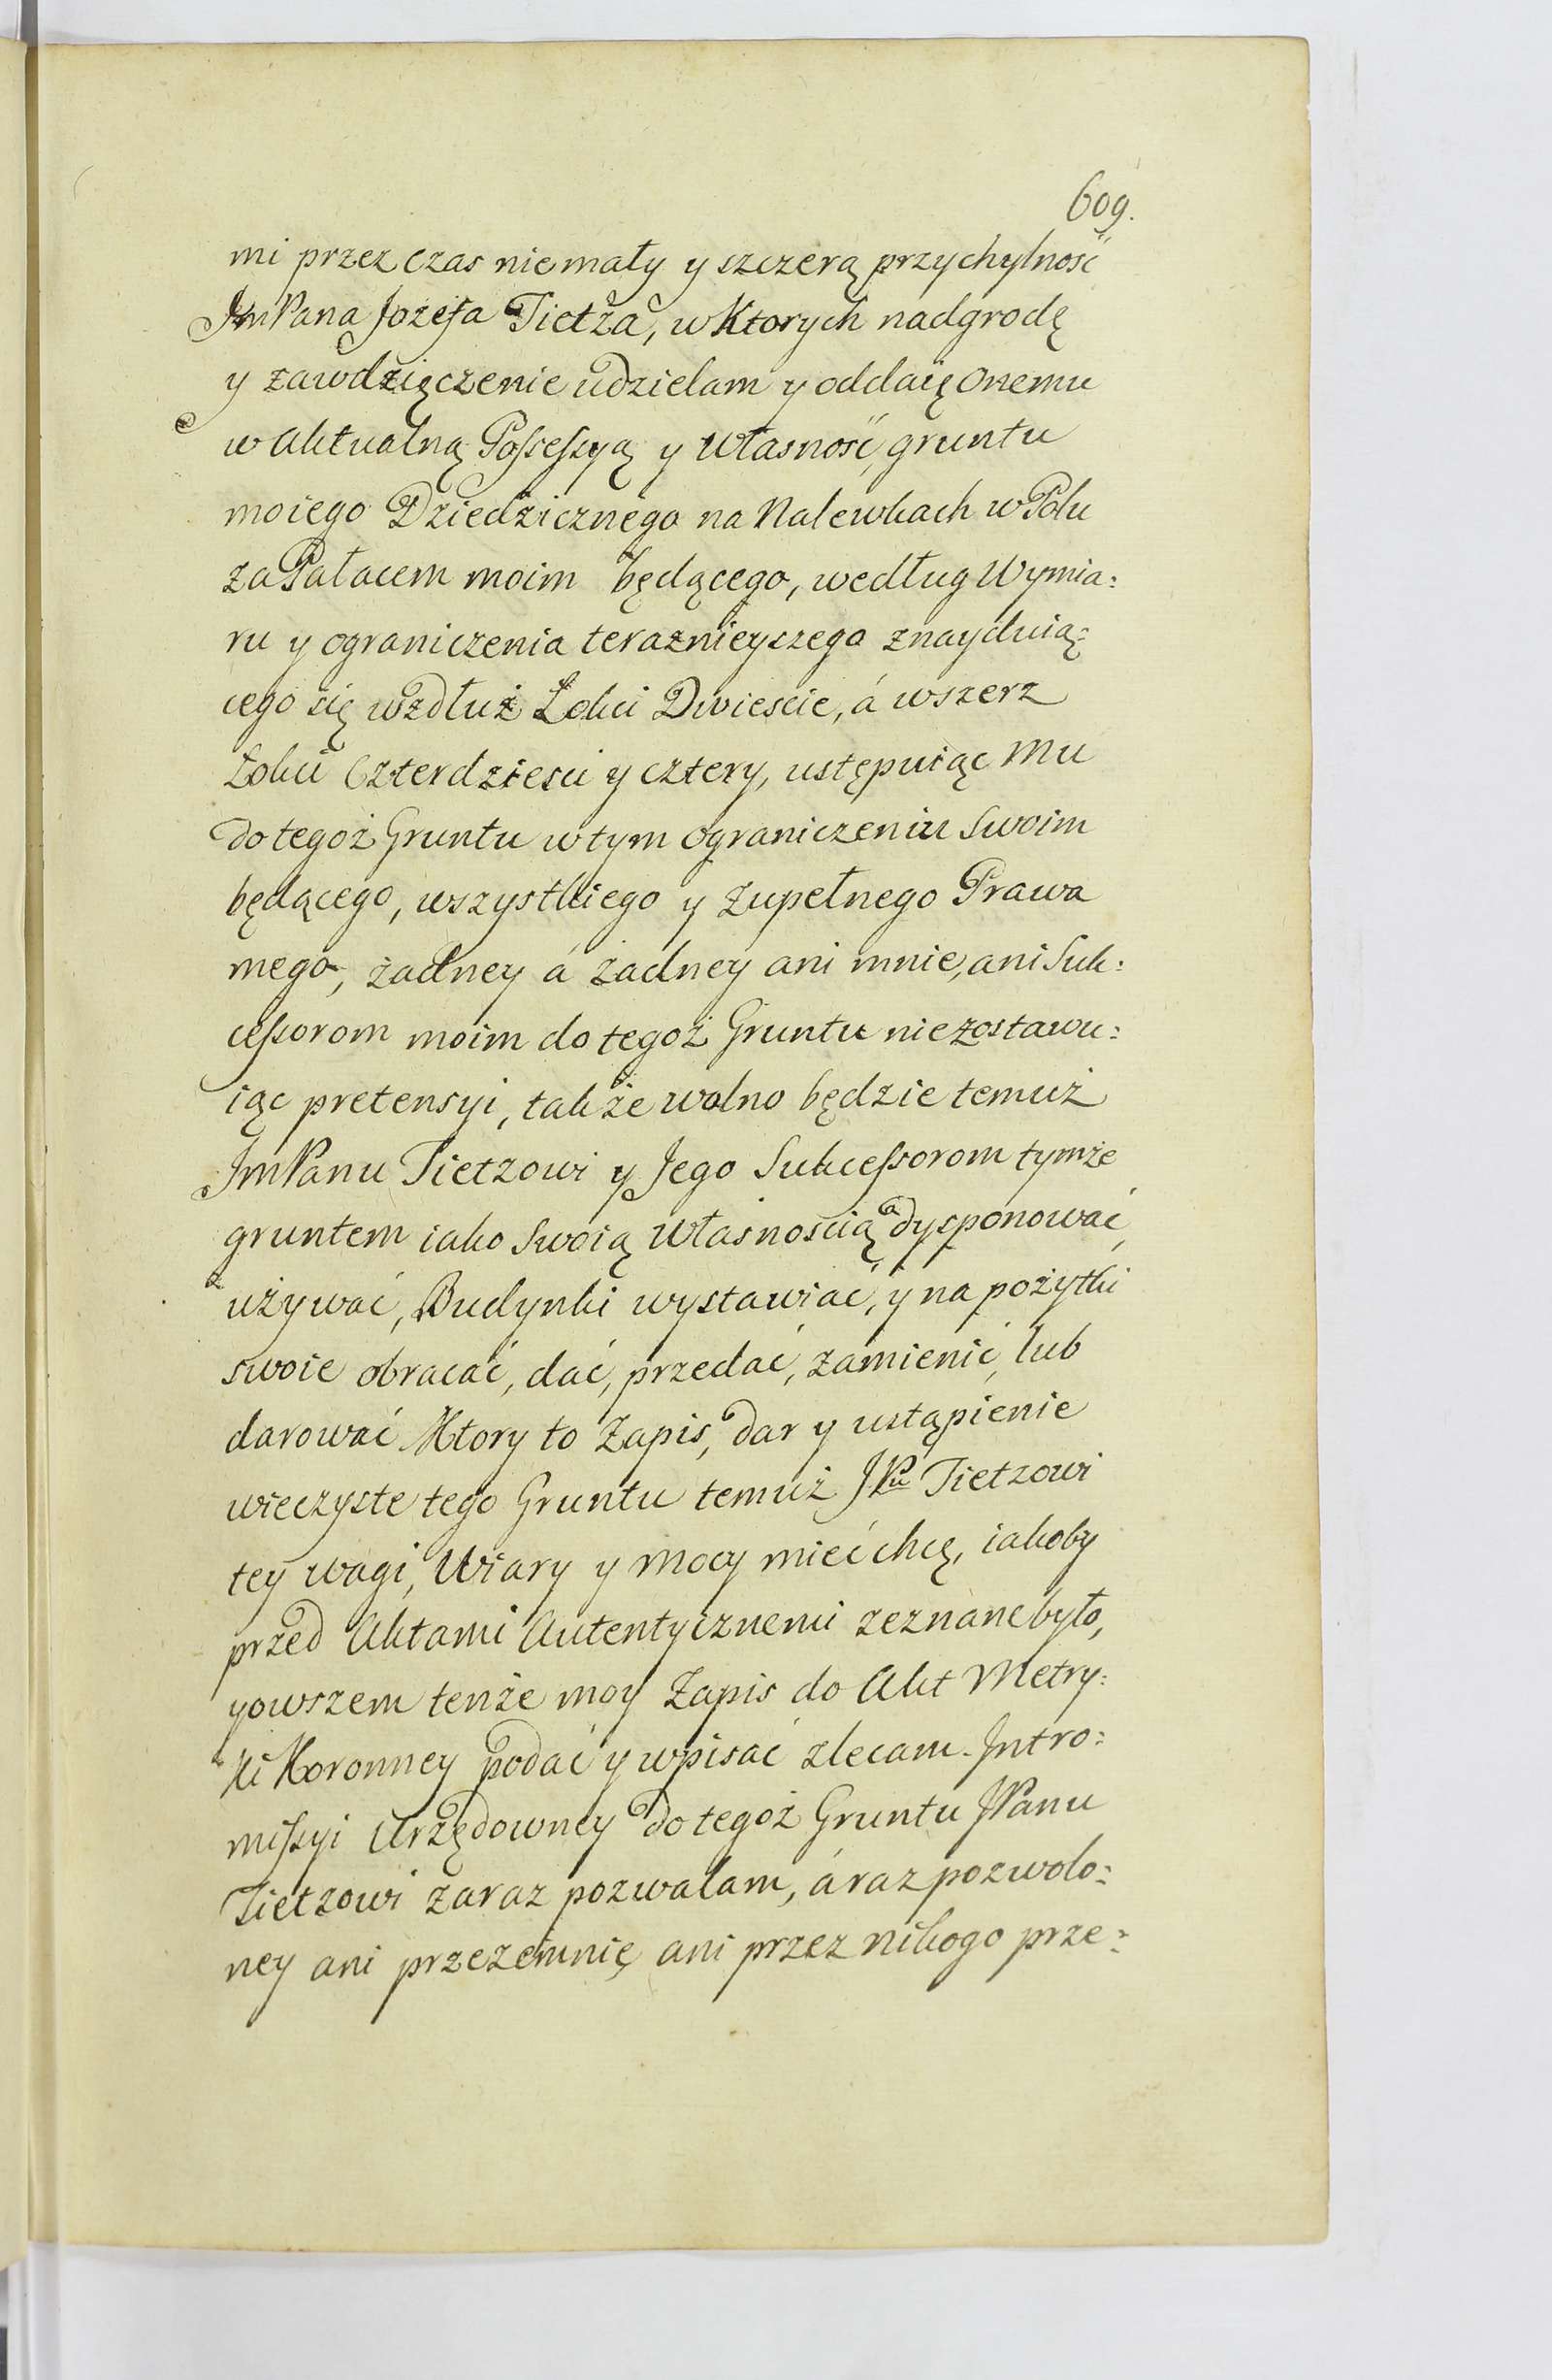 609.
mi przez czas niemały y szczerą przychylność
JmPana Jozefa Tietza, w ktorych nadgrodę
y zawdzięczenie udzielam y oddaię onemu
w Aktualną Possessyą y własność, gruntu
moiego Dziedzicznego na Nalewkach w Polu
za Pałacem moim będącego, według Wymia:
ru y ograniczenia teraznieyszego znayduią:
cego się wzdłuż Łokci Dwiescie, á wszerz
Łokci Czterdziesci y cztery, ustępuiąc Mu
do tegoż Gruntu w tym ograniczeniu swoim
będącego, wszystkiego y zupełnego Prawa
mego, żadney á żadney ani mnie, ani Suk:
cessorom moim do tegoż Gruntu niezostawu:
iąc pretensyi, tak że wolno będzie temuż
JmPanu Tietzowi y Jego Sukcessorom tymże
gruntem iako swoią własnoscią dysponować,
używać, Budynki wystawiać, y na pożytki
swoie obracać, dać, przedać, zamienić, lub
darować. Ktory to Zapis, dar y ustąpienie
wieczyste tego Gruntu temuż JPu Tietzowi
tey wagi, Wiary y mocy mieć chcę, iakoby
przed Aktami Autentycznemi zeznane było,
yowszem tenże moy Zapis do Akt Metry:
ki Koronney podać y wpisać zlecam. Intro:
missyi Urzędowney do tegoż Gruntu JPanu
Tietzowi zaraz pozwalam, á raz pozwolo:
ney ani przezemnię ani przez nikogo prze: